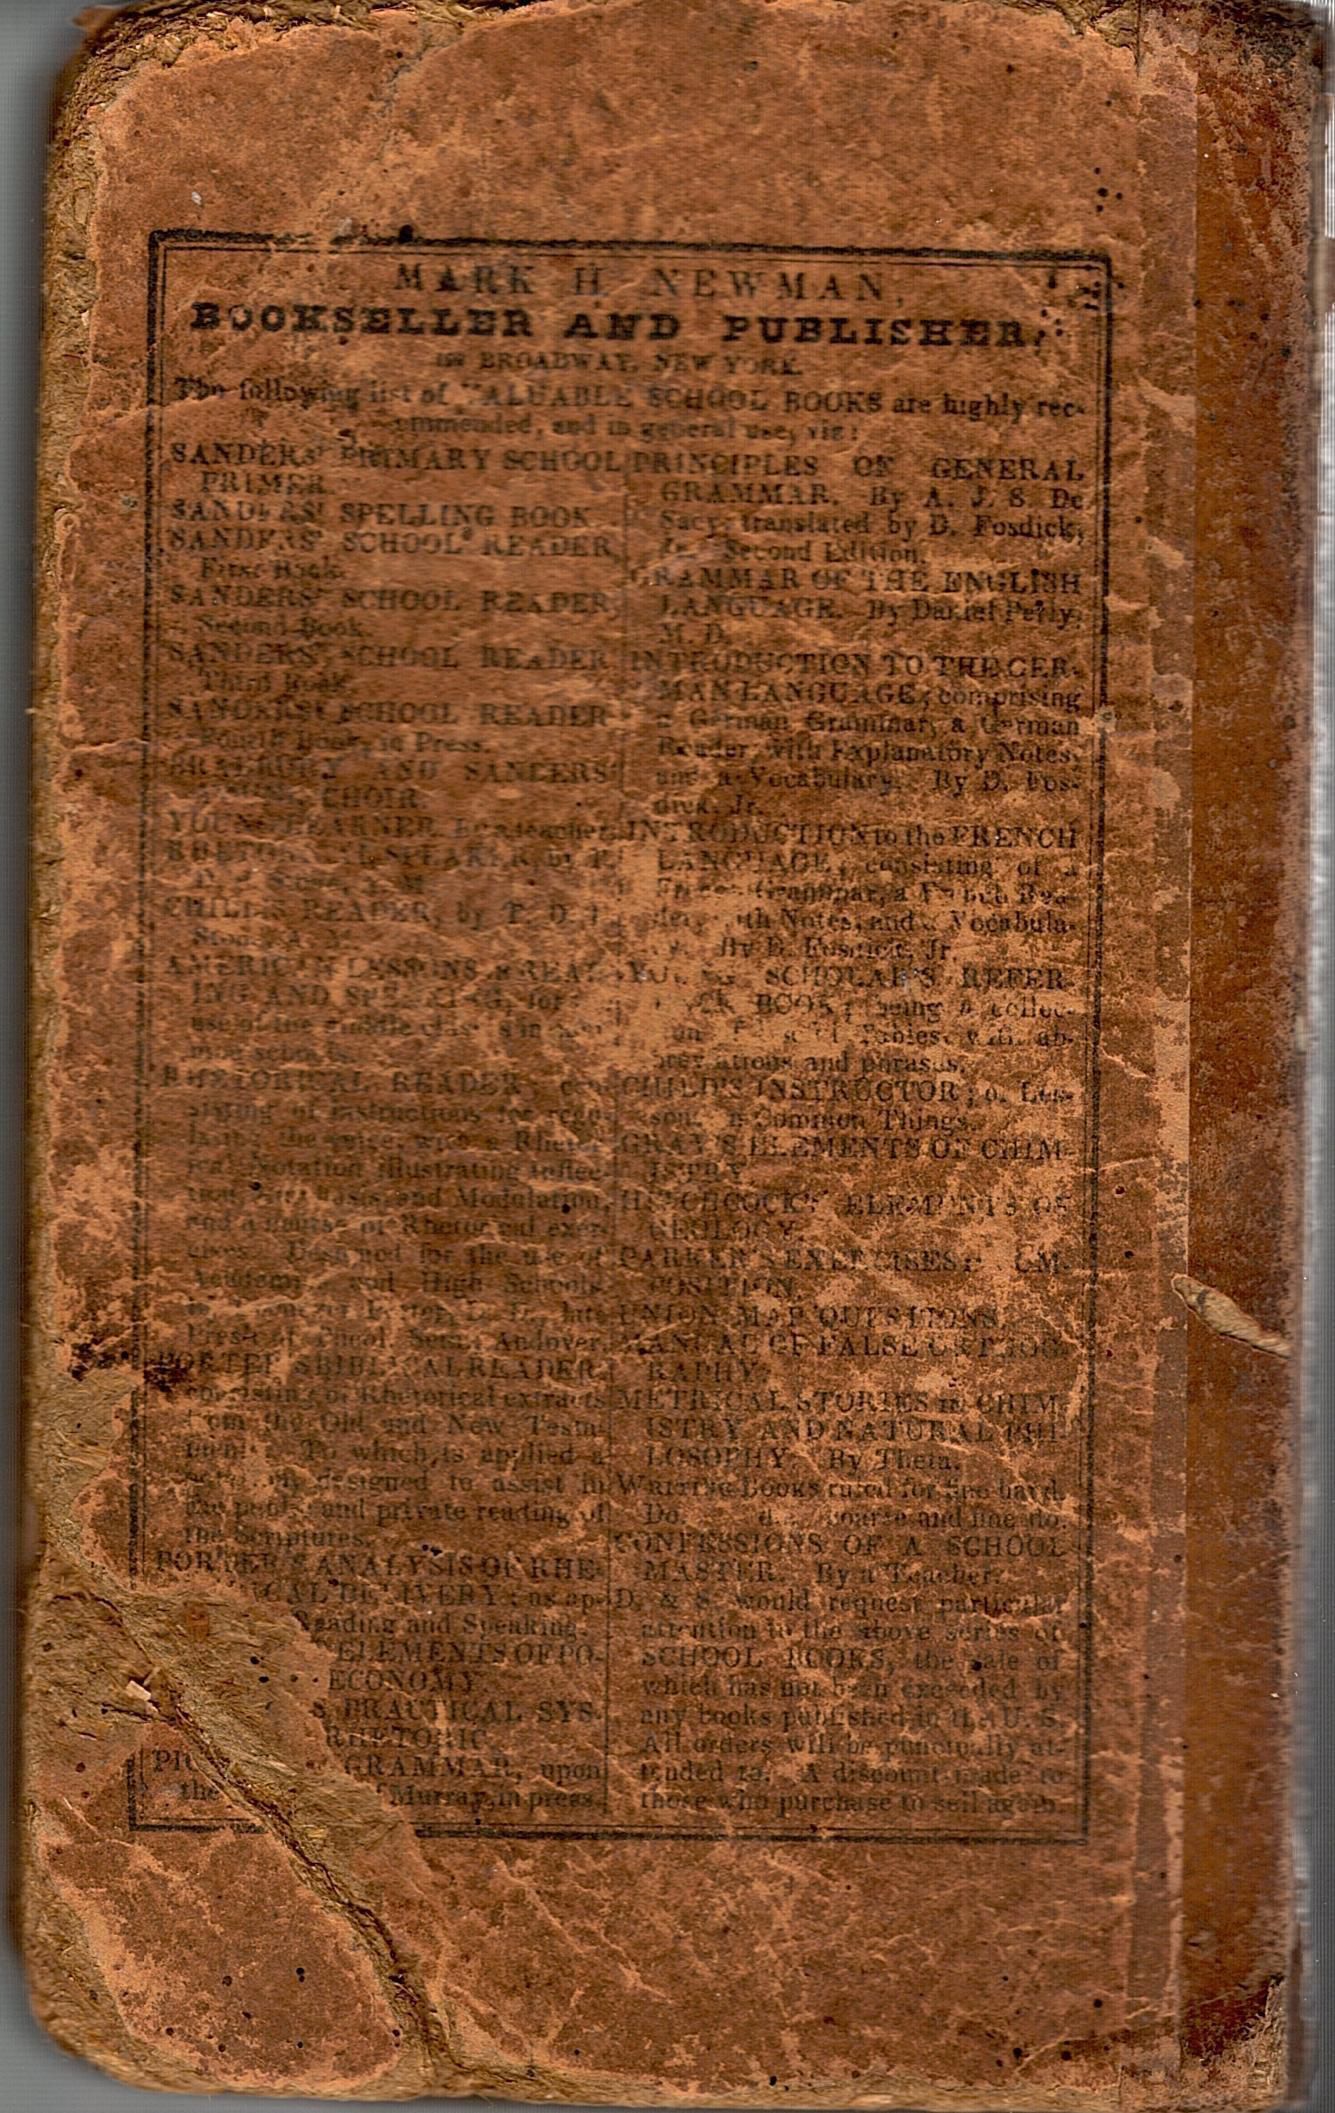 MARK H. NEWMAN,
BOOKSELLER AND PUBLISHER,
BROADWAY, NEW YORK.
The following list of VALUABLE SCHOOL BOOKS are highly rec-
ommended, and in general use, viz:
SANDERS' PRIMARY SCHOOL
PRIMER.
SANDERS' SPELLING BOOK
SANDERS' SCHOOL READER,
First Book.
SANDERS' SCHOOL READER,
Second Book.
SANDERS' SCHOOL READER
Third Book.
SANDERS' SCHOOL READER
Fourth Book, in Press.
BRADBURY AND SANDERS'
YOUNG CHOIR.
YOUNG LEARNER, by a teacher.
RHETORICAL SPEAKER, by
CHILD'S READER, by T. D. P.
Stone, A. M.
AMERICAN LESSONS in READ-
ING AND SPEAKING, for
use of the middle classes in
schools.
RHETORICAL READER; con-
sisting of instructions for regu-
lating the voice, with a Rhetor-
ical Notation illustrating inflec-
tion, Emphasis, and Modulation,
and a course of Rhetorical exer-
cises. Designed for the use of
Academies and High Schools.
by Ebenezer Porter, D. D., late
Pres't of Theol. Sem., Andover.
PORTER'S BIBLICAL READER,
consisting of Rhetorical extracts
from the Old and New Testa-
ments. To which is applied a
notation designed to assist in
the public and private reading of
the Scriptures.
PORTER'S ANALYSIS OF RHE-
ICAL DELIVERY; as ap-
Reading and Speaking.
ELEMENTS OF PO-
ECONOMY.
S PRACTICAL SYS-
RHETORIC.
GRAMMAR, upon
the Murray, in press.
PRINCIPLES OF GENERAL
GRAMMAR. By A. J. S. De
Sacy; translated by D. Fosdick,
Jr. Second Edition.
GRAMMAR OF THE ENGLISH
LANGUAGE. By Daniel
M. D.
INTRODUCTION TO THE GER-
MAN LANGUAGE; comprising
a German Grammar, a German
Reader, with Explanatory Notes,
and a Vocabulary. By D. Fos-
dick, Jr.
INTRODUCTION to the FRENCH
LANGUAGE, consisting of a
French Grammar, a French Rea-
der, with Notes, and a Vocabula-
By D. Fosdick, Jr.
YOUNG SCHOLAR'S REFER-
BOOK; being a collec-
Tables, with ab-
breviations and phrases.
CHILD'S INSTRUCTOR; or Les-
sons in Common Things.
GRAY'S ELEMENTS OF CHIM-
ISTRY
HITCHCOCK'S ELEMENTS OF
GEOLOGY.
PARKER'S EXERCISES in COM-
POSITION.
UNION MAP QUESTIONS.
MANUAL OF FALSE ORTHOG-
RAPHY.
METRICAL STORIES in CHIM-
ISTRY AND NATURAL PHI-
LOSOPHY. By Theta.
WRITING Books ruled for fine hand.
Do. coarse and fine do.
CONFESSIONS OF A SCHOOL
MASTER. By a Teacher.
D. & S. would request particular
attention to the above series of
SCHOOL BOOKS, the sale of
which has not been exceeded by
any books published in the U. S.
All orders will be punctually at-
tended to. A discount made to
those who purchase to sell again.